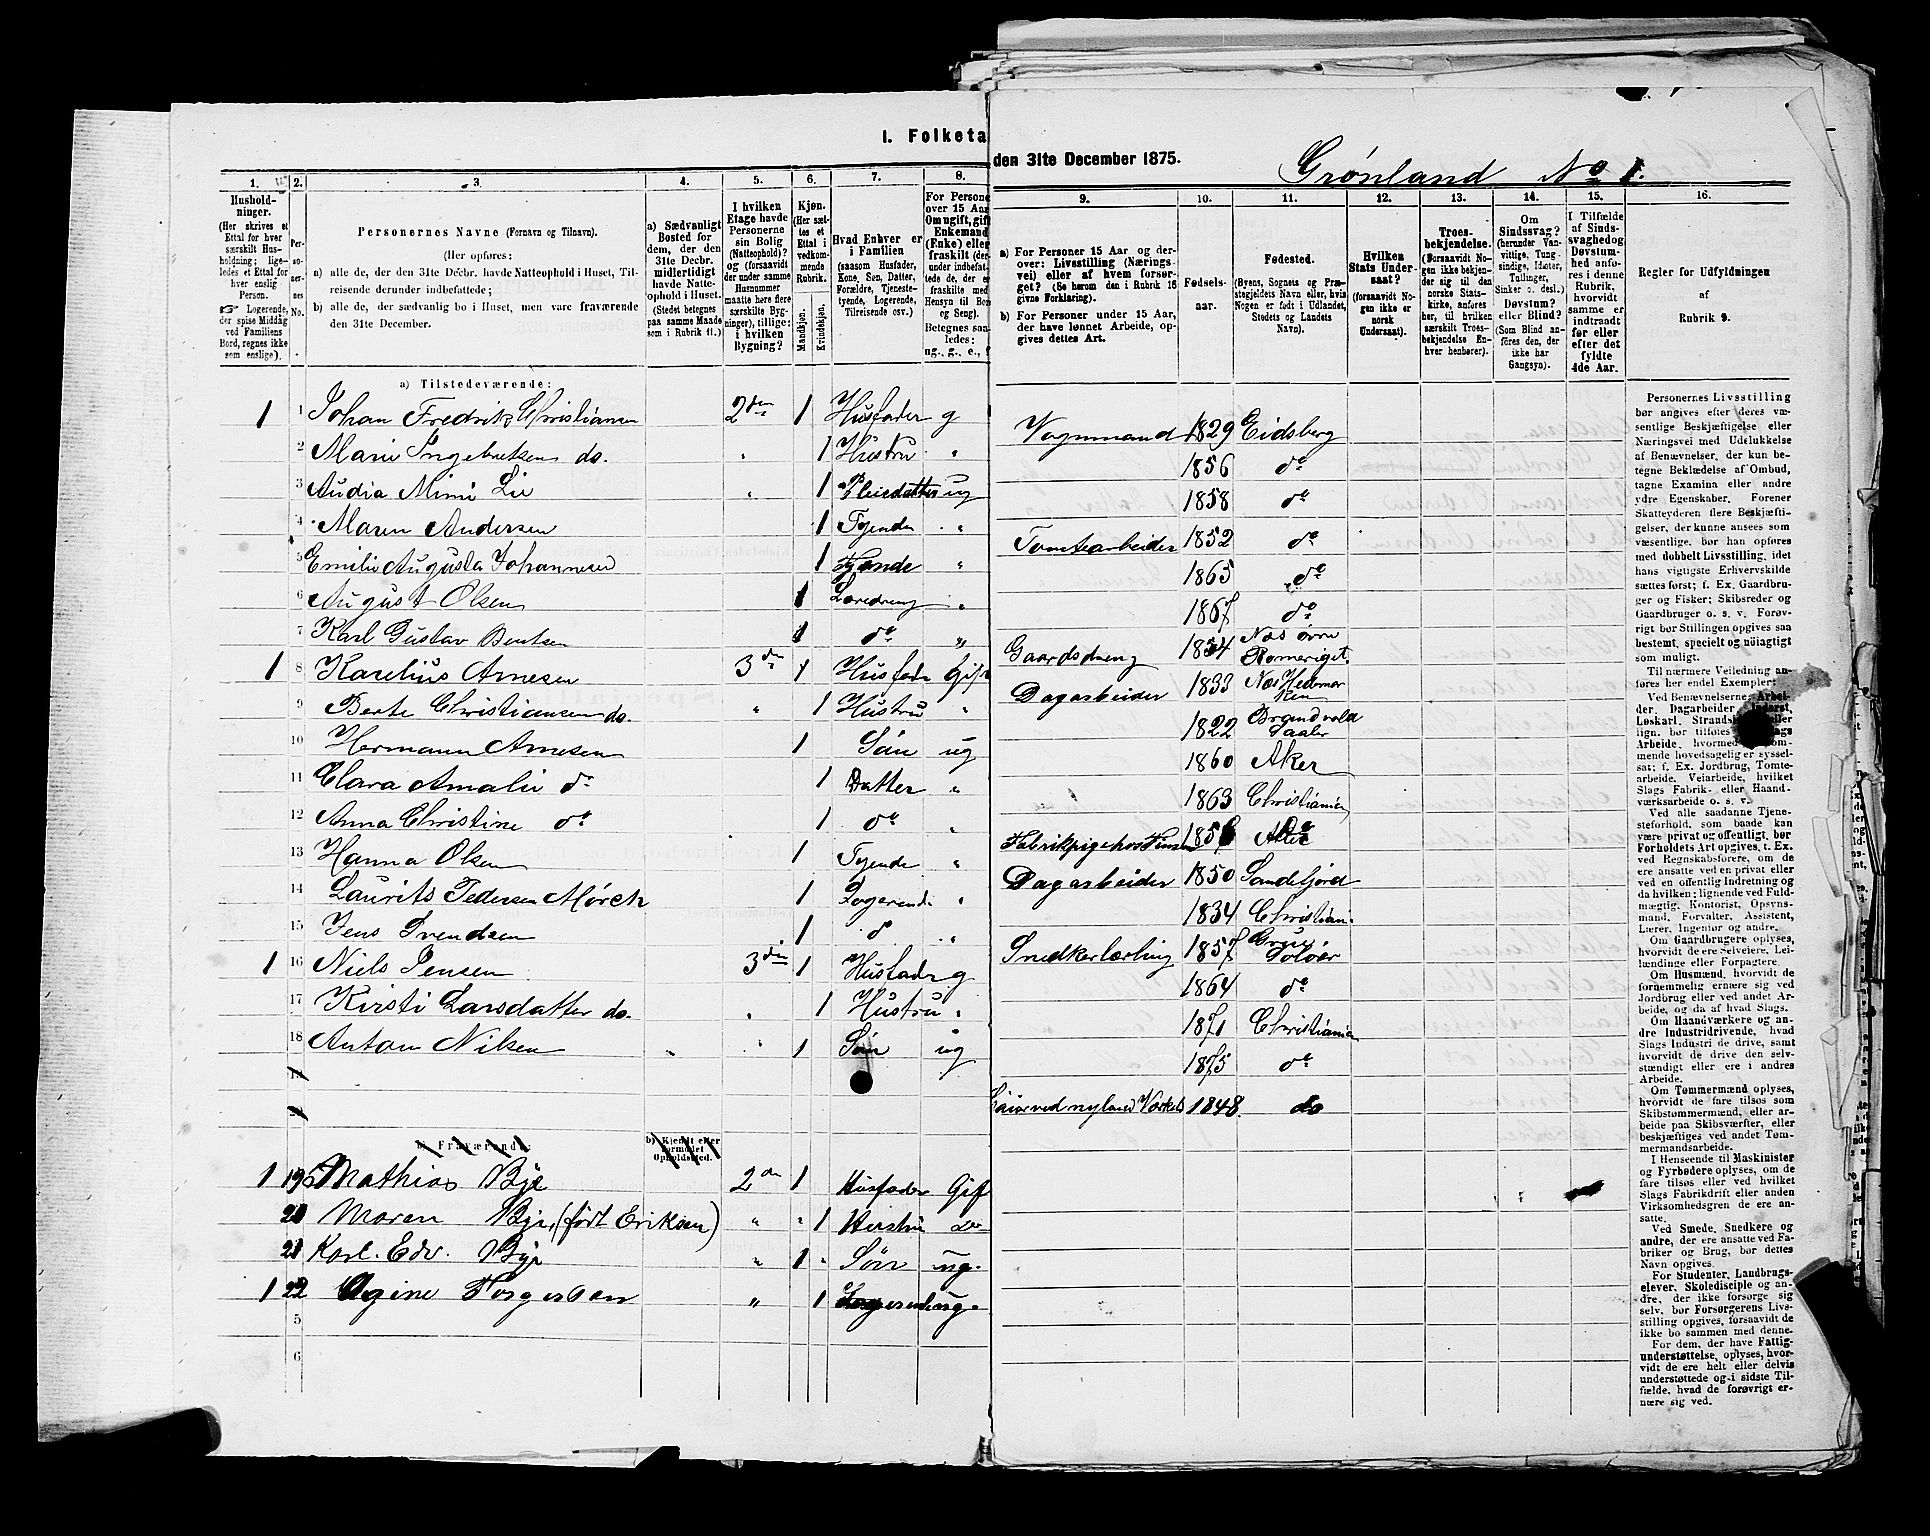 I. Folketa
1. 2. 3. 4. 5. 6. 7. 8.
Hushold-
ninger.
(Her skrives et
Ettal for hver
særskilt Hus-
holdning; lige-
ledes et Ettal for
hver enslig
Person.
Logerende,
der spise Middag
ved Familiens
Bord, regnes ikke
som enslige).
Per-
so-
ner-
nes
No.
Personernes Navne (Fornavn og Tilnavn).
(Her opføres:
a) alle de, der den 31te Decbr. havde Natteophold i Huset, Til-
reisende derunder indbefattede;
b) alle de, der sædvanlig bo i Huset, men vare fraværende
den 31te December.
a) Sædvanligt
Bosted for
dem, der den
31te Decbr.
midlertidigt
havde Natte-
ophold i Huset.
(Stedet betegnes
paa samme Maade
som i Rubrik 11.)
I hvilken
Etage havde
Personerne
sin Bolig
(Natteophold)?
og (forsaavidt
der under samme
Husnummer
maatte høre flere
særskilte Byg-
ninger), tillige:
i hvilken
Bygning?
Kjøn.
(Her sæt-
tes et
Ettal i
vedkom-
mende
Rubrik.
Mandkjøn.
Kvindekjøn.
Hvad Enhver er
i Familien
(saasom Husfader,
Kone, Søn, Datter,
Forældre, Tjeneste-
tyende, Logerende,
Tilreisende osv.)
For Persone
over 15 Aar
Om ugift, gift
Enkemand
(Enke) eller
fraskilt (der-
under indbefat-
tede de, der er
fraskilte med
Hensyn til Bo
og Seng).
Betegnes saa-
ledes:
ug., g., e., f
a) Tilstedeværende:
1 1 Johan Fredrik Christiansen 2den 1 Husfader g
2 Marie Ingebretsen do. " 1 Hustru "
3 Audia Mimi Lie " 1 Pleiedatter ug
4 Maren Andersen 1 Tyende "
5 Emilie Augusta Johannesen 1 Tyende "
6 August Olsen 1 Læredreng "
7 Karl Gustav Bentsen 1 do "
1 8 Karelius Arnesen 3die 1 Husfader Gift
9 Berte Christiansen do. " 1 Hustru "
10 Hermann Arnesen 1 Søn ug
11 Clara Amalie do 1 Datter "
12 Anna Christine do 1 do "
13 Hanna Olsen 1 Tyende "
14 Laurits Pedersen Mørch 1 Logerende "
15 Jens Svendsen 1 do "
1 16 Niels Jensen 3die 1 Husfader g
17 Kirsti Larsdatter do. " 1 Hustru "
18 Anton Nilsen " " 1 Søn ug
b) Fraværende:
b) Kjendt eller
formodet
Opholdssted.
1 19 Mathias Bye 2den 1 Husfader Gift
20 Maren Bye, (født Eriksen) " " 1 Hustru Do
21 Karl. Edv. Bye " 1 " Sønn ug.
1 22 Agine Torgersen " 1 Logerende ug.
5
6
den 31te December 1875.
Grønland No 1.
9. 10. 11. 12. 13. 14. 15. 16.
a) For Personer 15 Aar og der-
over: Livsstilling (Nærings-
vei) eller af hvem forsør-
get? (Se herom den i Rubrik 16
givne Forklaring).
b) For Personer under 15 Aar,
der have lønnet Arbeide, op-
gives dettes Art.
Fødsels-
aar.
Fødested.
(Byens, Sognets og Præ-
stegjeldets Navn eller, hvis
Nogen er født i Udlandet,
Stedets og Landets
Navn).
Hvilken
Stats Under-
saat?
(forsaavidt No-
gen ikke er
norsk
Undersaat).
Troes-
bekjendelse.
(forsaavidt No-
gen ikke bekjen-
der sig til den
norske Stats-
kirke, anføres
her, til hvilken
særskilt Troes-
bekjendelse En-
hver henhører).
Om
Sindssvag?
(herunder Van-
vittige, Tung-
sindige, Idioter,
Tullinger,
Sinker o. desl.)
Døvstum?
eller Blind?
(Som Blind an-
føres den, der
ikke har
Gangsyn).
I Tilfælde
af Sinds-
svaghedog
Døvstum-
hed anfø-
res i denne
Rubrik,
hvorvidt
samme er
indtraadt
før eller
efter det
fyldte
4de Aar.
Regler for Udfyldningen
af
Rubrik 9.
Vognmand 1829 Eidsberg
1856 do
1858 do
Tomtearbeider 1852 do
1865 do
1867 do
Gaardsdreng 1854 Næs øvre
Romeriget.
Dagarbeider 1833 Næs Hedemar
ken
1822 Brandvold
Solør
1860 Aker
1863 Christiania
Fabrikpige hos 1856
Dagarbeider 1850 Sandefjord
1834 Christiania
Snedkerlærling 1857 Grue
Soløer
1864 do
1871 Christiania
1875 do
ved nylands Værksted 1848. do
Personernes Livsstilling
bør angives efter deres væ-
sentlige Beskjæftigelse eller
Næringsvei med Udelukkelse
af Benævnelser, der kun be-
tegne Beklædelse af Ombud,
tagne Examina eller andre
ydre Egenskaber. Forener
Skatteyderen flere Beskjæfti-
gelser, der kunne ansees som
væsentlige, bør han opføres
med dobbelt Livsstilling, idet
hans vigtigste Erhvervskilde
sættes først; f. Ex. Gaardbru-
ger og Fisker; Skibsreder og
Gaardbruger o. s. v. Forøv-
rigt bør Stillingen opgives saa
bestemt, specielt og nøiagtigt
som muligt.
Til nærmere Veiledning an-
føres her endel Exempler:
Ved Benævnelserne: Arbei-
der, Dagarbeider, Inderst,
Løskarl, Strandsidder eller
lign. bør tilføies det Slags
Arbeide, hvormed Vedkom-
mende hovedsagelig er syssel-
sat; f. Ex. Jordbrug, Tomte-
arbeide, Veiarbeide, hvilket
Slags Fabrik- eller Haand-
værksarbeide o. s. v.
Ved alle saadanne Tjene-
steforhold, som baade kan
være privat og offentligt, bør
Forholdets Art opgives, t. Ex.
ved Regnskabsførere, om de
ere ansatte ved en privat eller
ved en offentlig Indretning og
da hvilken; lignende ved Fuld-
mægtig, Kontorist, Opsyns-
mand, Forvalter, Assistent,
Lærer, Ingeniør og andre.
Om Gaardbrugere oplyses,
hvorvidt de ere Selveiere, Lei-
lændinge eller Forpagtere.
Om Husmænd, hvorvidt de
fornemmelig ernære sig ved
Jordbrug eller ved andet Ar-
beide, og da af hvad Slags.
Om Haandværkere og an-
dre Industridrivende, hvad
Slags Industri de drive, samt
hvorvidt de drive den selv-
stændigt eller ere i andres
Arbeide.
Om Tømmermænd oplyses,
hvorvidt de fare tilsøs som
Skibstømmermænd, eller ar-
beide paa Skibsværfter, eller
beskjæftiges ved andet Tøm-
mermandsarbeide.
I Henseende til Maskinister
og Fyrbødere oplyses, om de
fare tilsøs eller ved hvilket
Slags Fabrikdrift eller anden
Virksomhedsgren de ere an-
satte.
Ved Smede, Snedkere og
andre, der ere ansatte ved Fa-
briker og Brug, bør dettes
Navn opgives.
For Studenter, Landbrugs-
elever, Skoledisciple og an-
dre, der ikke forsørge sig
selv, bør Forsørgerens Livs-
stilling opgives, forsaavidt de
ikke bo sammen med denne.
For dem, der have Fattig-
understøttelse, oplyses, hvor-
vidt de ere helt eller delvis
understøttede og i sidste Til-
fælde, hvad de forøvrigt er-
nære sig ved.